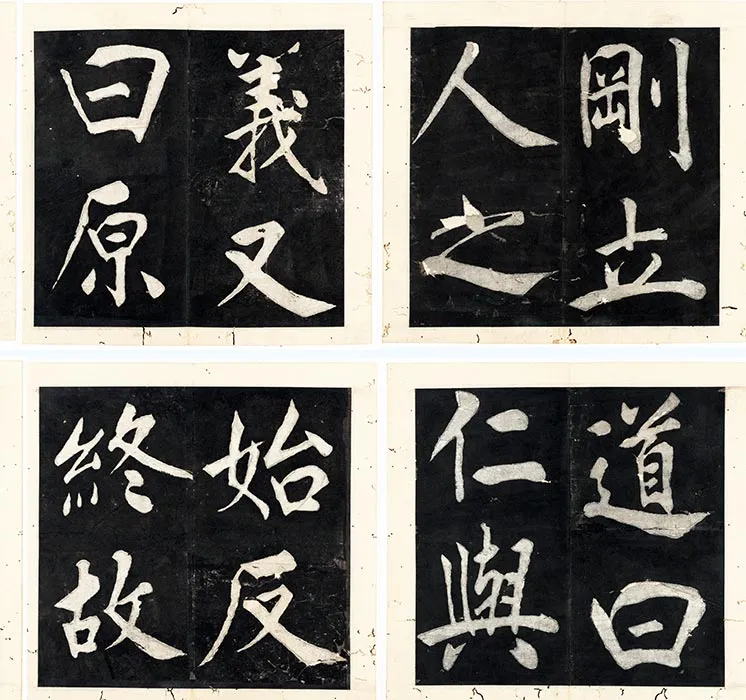 剛立
人之
道曰
仁與
義又
曰原
始反
終故